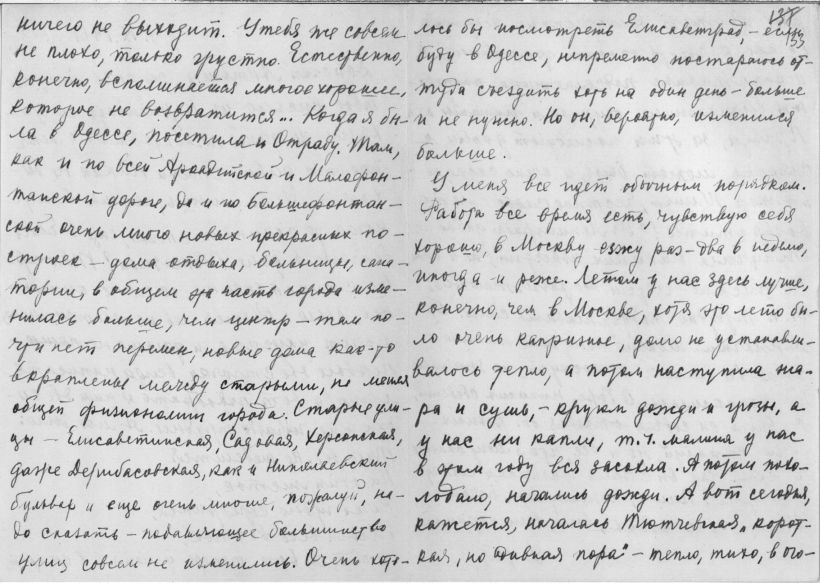 ничего не выходит. У тебя же совсем
не плохо, только грустно. Естественно,
конечно, вспоминается многое хорошее,
которое не возвратится... Когда я бы-
ла в Одессе, посетила и Отраду. Там,
как и по всей Аркадитской и Малофон-
танской дороге, да и по Большефонтан-
ской очень много новых прекрасных по-
строек – дома отдыха, больницы, сана-
тории, в общем эта часть города изме-
нилась больше, чем центр – там по-
чти нет перемен, новые дома как-то
вкраплены между старыми, не меняя
общей физиономии города. Старые ули-
цы – Елисаветинская, Садовая, Херсонская,
даже Дерибасовская, как и Николаевский
бульвар и еще очень многие, пожалуй, на-
до сказать – подавляющее большинство
улиц совсем не изменились. Очень хоте-
137
33
лось бы посмотреть Елисаветград, – если
буду в Одессе, непременно постараюсь от-
туда съездить хоть на один день – больше
и не нужно. Но он, вероятно, изменился
больше.
У меня все идет обычным порядком.
Работа все время есть, чувствую себя
хорошо, в Москву езжу раз-два в неделю,
иногда и реже. Летом у нас здесь лучше,
конечно, чем в Москве, хотя это лето бы-
ло очень капризное, долго не устанавли-
валось тепло, а потом наступила жа-
ра и сушь, – кругом дожди и грозы, а
у нас ни капли, т.ч. малина у нас
в этом году вся засохла. А потом похо-
лодало, начались дожди. А вот сегодня,
кажется, началась Тютчевская „корот-
кая, но дивная пора" – тепло, тихо, в ого-